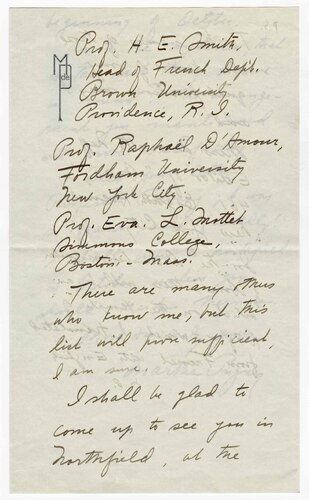 Prof. H. E. Smith,
Head of French Dept.
Brown University
Providence, R. I.
Prof. Raphaël D'Amour,
Fordham University
New York City.
Prof. Eva L. Mottet
Simmons College,
Boston - Mass.
There are many others
who know me, but this
list will prove sufficient,
I am sure.
I shall be glad to
come up to see you in
Northfield, at the